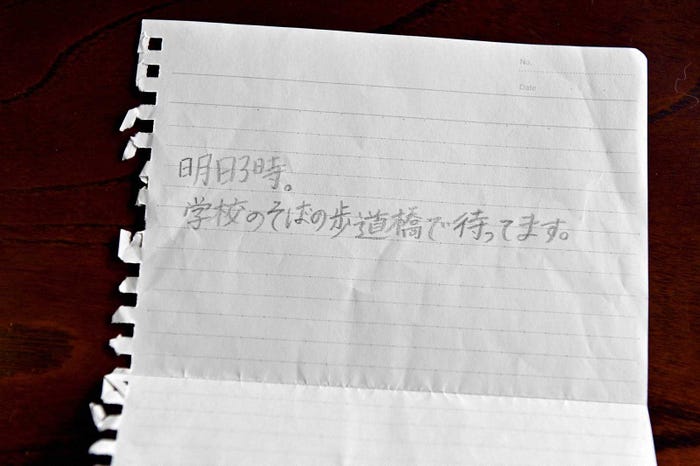 No.
Date
明日3時。
学校のそばの歩道橋で待ってます。